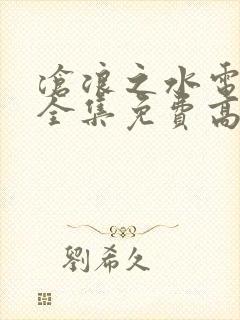 滄浪之水電
全集免費高
劉希久